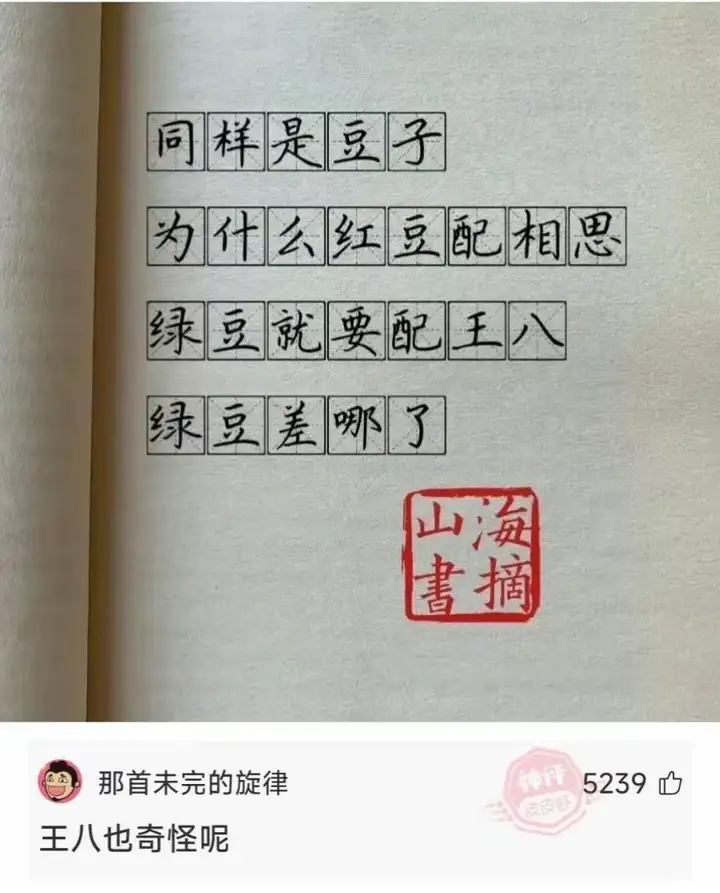 同样是豆子
为什么红豆配相思
绿豆就要配王八
绿豆差哪了
山海
書摘
那首未完的旋律
神评
皮皮虾
5239
王八也奇怪呢